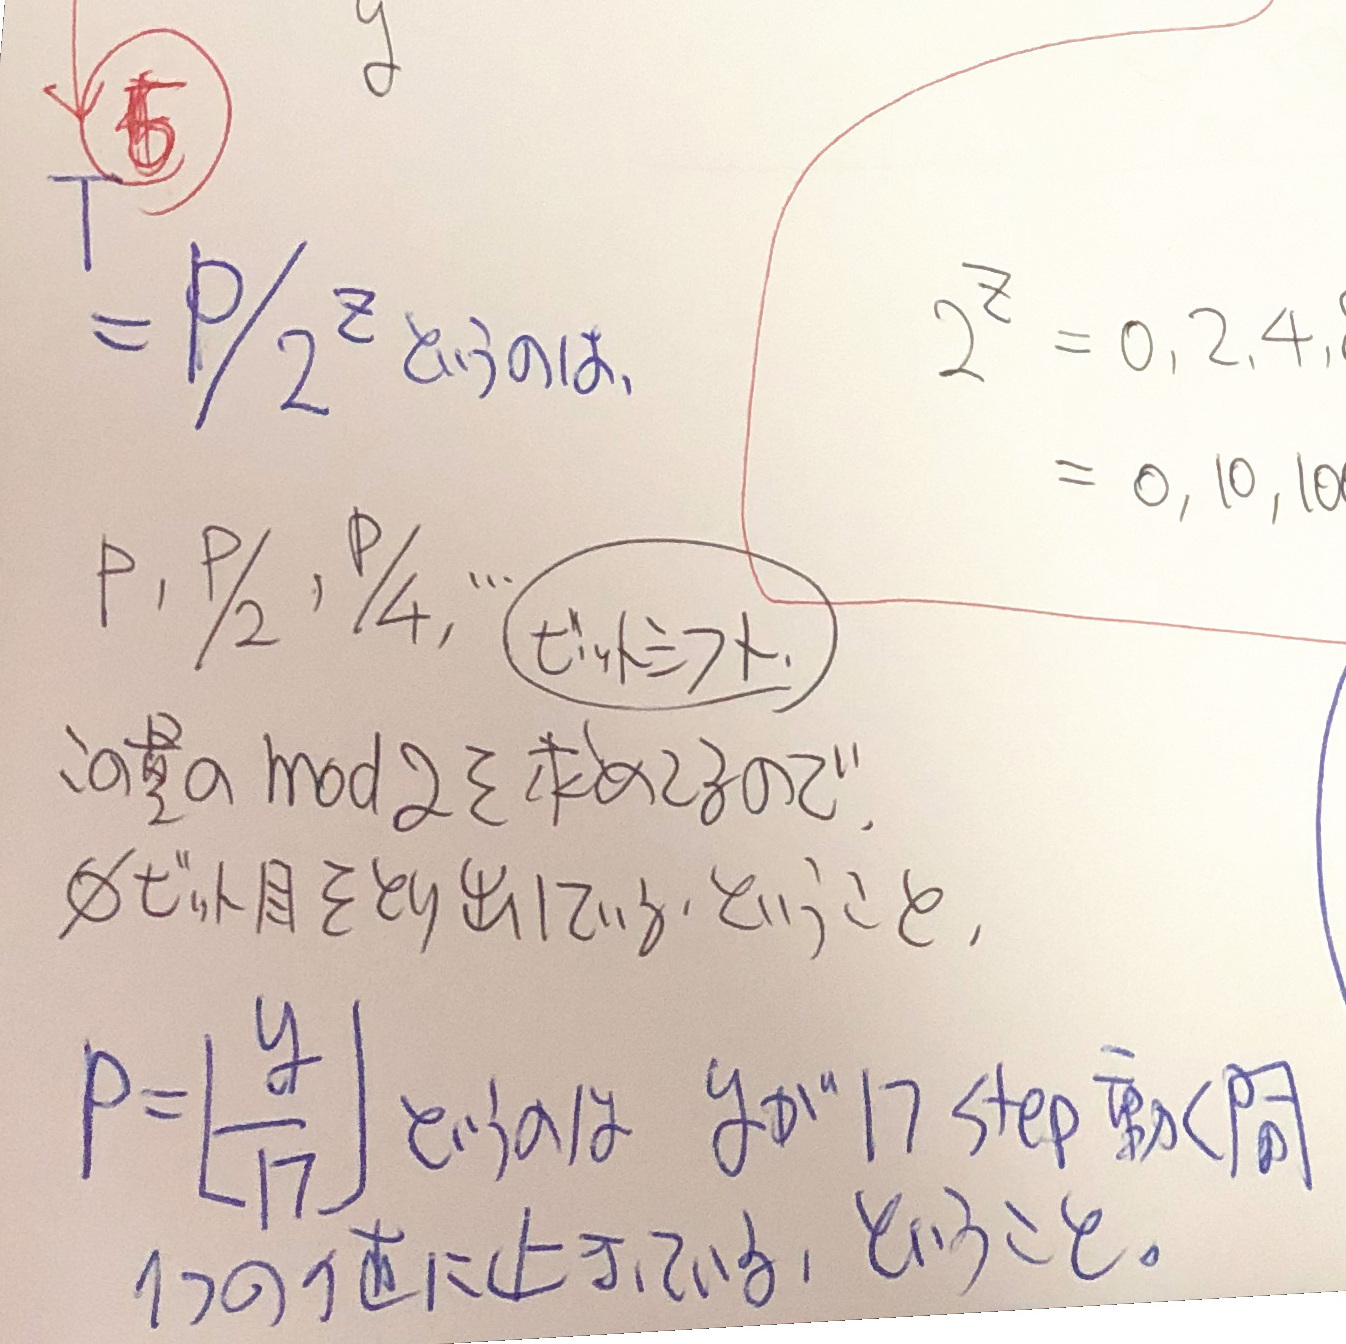 y
5
T
= P/2^z というのは、
2^z = 0, 2, 4,
= 0, 10, 100
P, P/2, P/4, …
ビットシフト.
この量の mod 2 を 求めてるので、
0ビット目をとり出している. ということ,
P = ⌊y/17⌋ というのは yが 17 step 動く間
1つの値に止まっている, ということ。